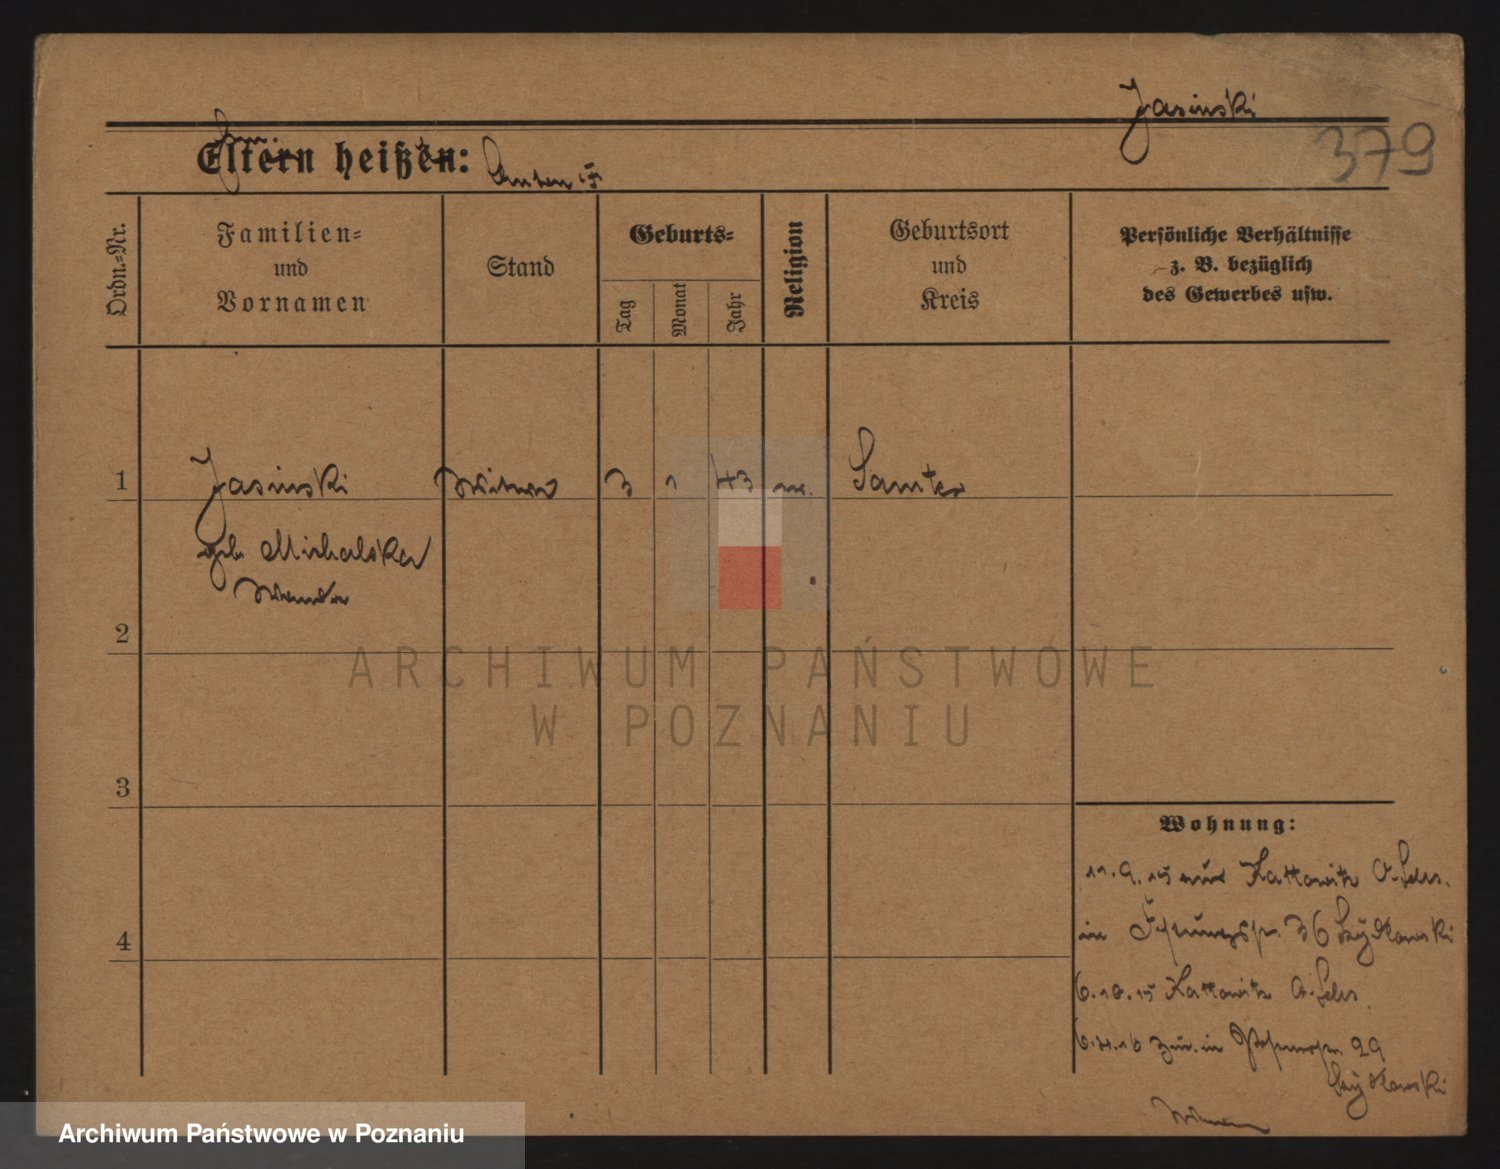 Jasinski
379
Eltern heißen:
Ordn.-Nr.
Familien-
und
Vornamen
Stand
Geburts-
Tag
Monat
Jahr
Religion
Geburtsort
und
Kreis
Persönliche Verhältnisse
z. B. bezüglich
des Gewerbes usw.
1 Jasinski 3 1 43 Samter
geb. Michalska
2
ARCHIWUM PAŃSTWOWE
W POZNANIU
3
Wohnung:
11.9.15 aus Kattowitz O.Schles.
4
in 36
6.10.15 Kattowitz O.Schles.
6.4.16 zur. in 29
Archiwum Państwowe w Poznaniu